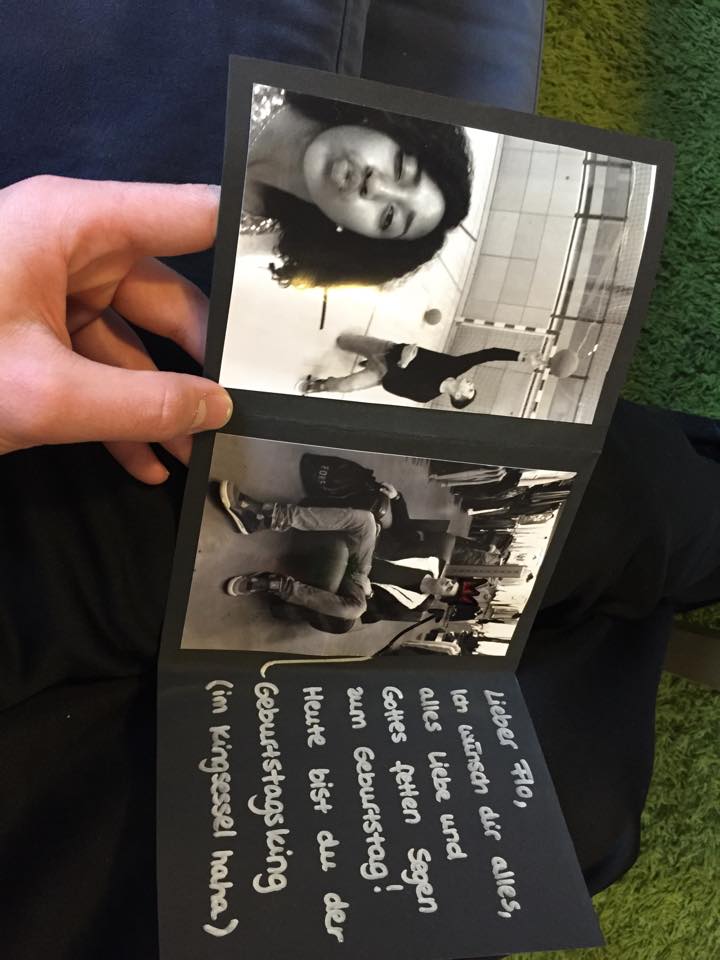 Lieber Flo,
Ich wünsch dir alles,
alles Liebe und
Gottes fetten Segen
zum Geburtstag!
Heute bist du der
Geburtstagsking
(im Kingsessel haha)